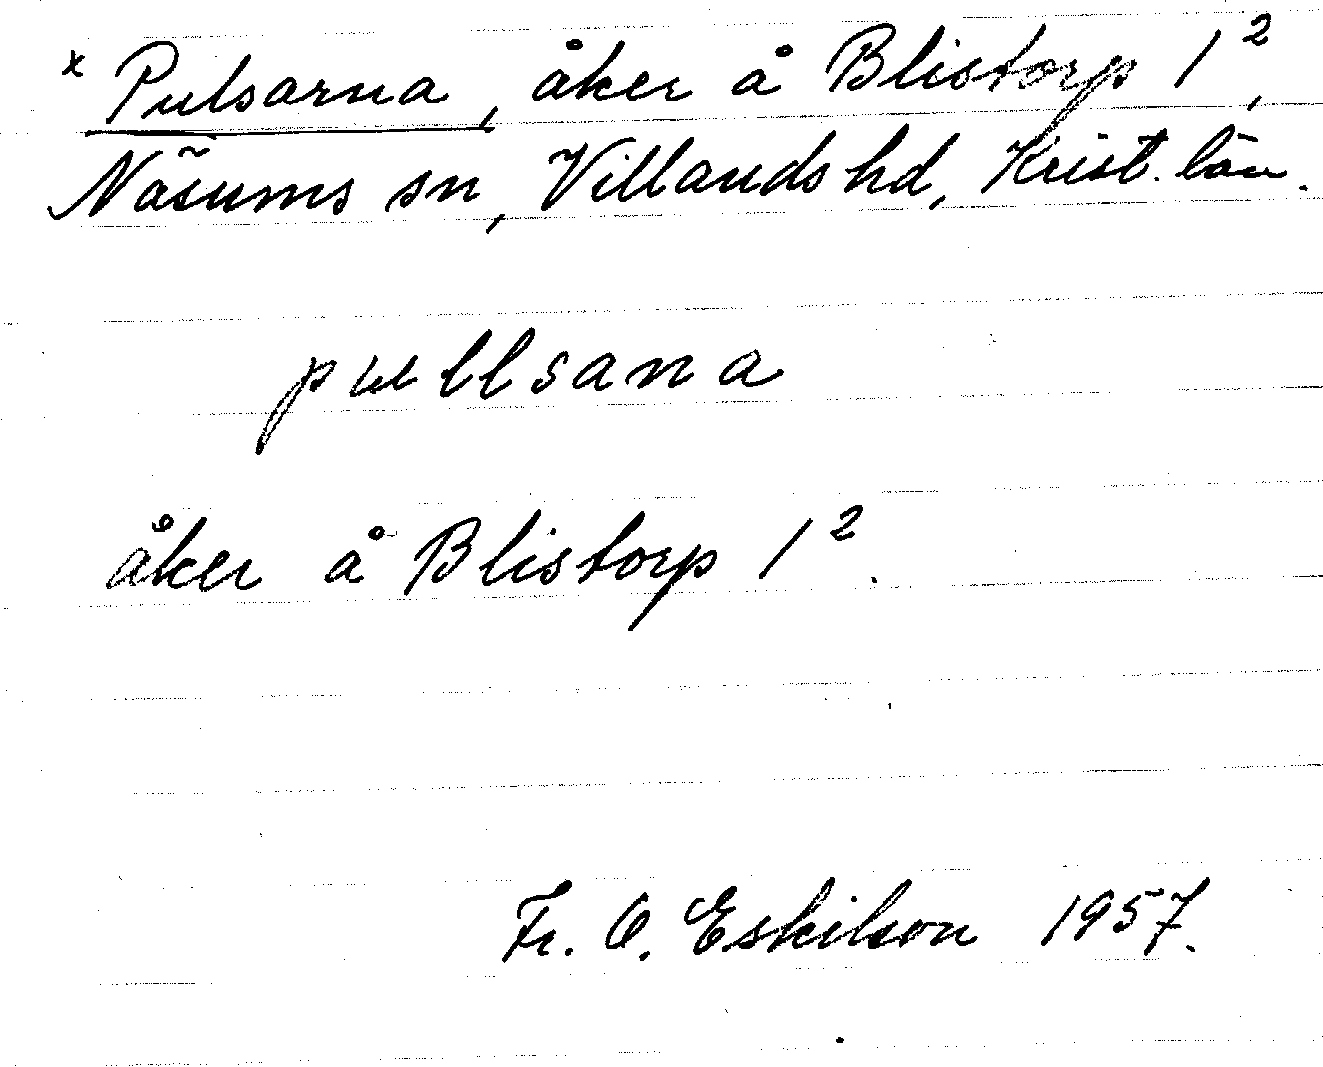 x Pulsarna, åker å Blistorp 1²,
Näsums sn, Villands hd, Krist. län.
pullsana
åker å Blistorp 1².
Fr. O. Eskilson 1957.